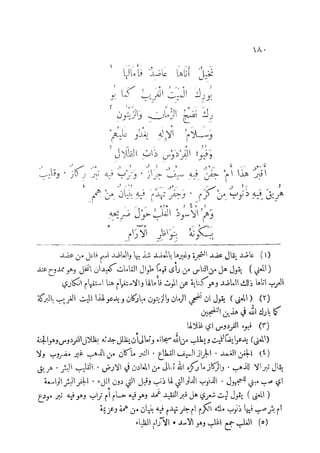 ١٨٠
نخيلٌ أتاها عاضدٌ فأمالها ١
بورك الميت الغريب كما بو
رك نضح الرمان والزيتون ٢
وسلام الإله يغدو عليهم
وفيوء الفردوس ذات الظلال ٣
أقبر هذا أم جفن فيه سيف جراز . وترب فيه تبر ركاز . وقليب
هريق فيه ذنوب من كرم . وجفر تهدم فيه بنيان من همم ٤
وهم الأسود الغلب حول ضريحه
يبكونه بنواظر الآرام ٥
(١) عاضد يقال عضد الشجرة وغيرها بالمعضد شذ بها والعاضد اسم فاعل من عضد
(المعنى) يقول هل من الناس من رأى قوما طوال القامات كعيدان النخل وهو ممدوح عند
العرب أتاها ذلك العاضد وهو كناية عن الموت فأمالها والاستفهام هنا استفهام انكاري
(٢) (المعنى) يقول ان نضحي الرمان والزيتون مباركان ويدعو لهذا الميت الغريب بالبركة
كما بارك الله في هذين النضحين
(٣) فيوء الفردوس اي ظلالها
(المعنى) يدعو ايضا لميت ويطلب من الله سبحانه وتعالى أن يظلل جدثه بظلال الفردوس وهو الجنة
(٤) الجفن الغمد . الجراز السيف القطاع . التبر ما كان من الذهب غير مضروب ولا
يقال تبر الا للذهب . والركاز ما ركزه الله تعالى من المعادن في الارض . القليب البئر . هريق
اي صب مبني للمجهول . الذنوب الدلو التي لها ذنب وقيل التي دون الملء . الجفر البئر الواسعة
(المعنى) يقول ليت شعري هل قبر الفقيد غمد وهو فيه حسام أم تراب وهو فيه تبر مودع
أم بئر صب فيها ذنوب ملئه الكرم ام جفر تهدم فيه بنيان من همة وعزيمة
(٥) الغلب جمع اغلب وهو الاسد . الآرام الظباء